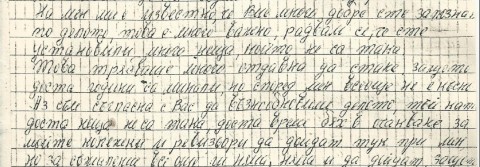 На мен ми е известно, че Вие много добре сте запозна-
то делото, това е много важно, радвам се, че сте
установили много неща, които не са така
Това трябваше много отдавна да стане, защото
доста години са минали, но според мен всеощe не е късно
Аз съм съгласна с Вас да възобновиме делото, тъй като
доста неща не са така, доста време бях в очакване за
моите колежки и ревизьори да дойдат тук при мен
но за съжаление все още ги няма, нека и да дойдат защото